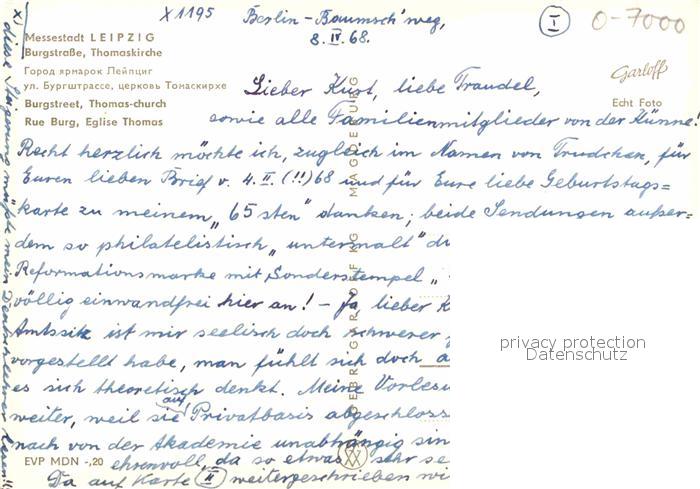 X 1195
Berlin-Baumsch'weg,
8. IV. 68.
I
0-7000
Messestadt LEIPZIG
Burgstraße, Thomaskirche
Город ярмарок Лейпциг
ул. Бургштрассе, церковь Томаскирхе
Burgstreet, Thomas-church
Rue Burg, Eglise Thomas
Garloff
Echt Foto
Lieber Kurt, liebe Traudel,
sowie alle Familienmitglieder von der Hünne!
Recht herzlich möchte ich, zugleich im Namen von Trudchen, für
Euren lieben Brief v. 4. II. (!!) 68 und für Eure liebe Geburtstags=
karte zu meinem „65 sten" danken; beide Sendungen außer=
dem so philatelistisch „untermalt" du
Reformationsmarke mit Sonderstempel „
völlig einwandfrei hier an! – Ja, lieber K
Amtssitz ist mir seelisch doch schwerer
vorgestellt habe, man fühlt sich doch a
es sich theoretisch denkt. Meine Vorlesu
weiter, weil sie auf Privatbasis abgeschloss
nach von der Akademie unabhängig sin
ehrenvoll, da so etwas sehr se
Da auf Karte II weitergeschrieben wi
EVP MDN -,20
GEBR. GARLOFF KG MAGDEBURG
x) diese Steigerung müßte mein Deutschlehrer lesen!!
privacy protection
Datenschutz